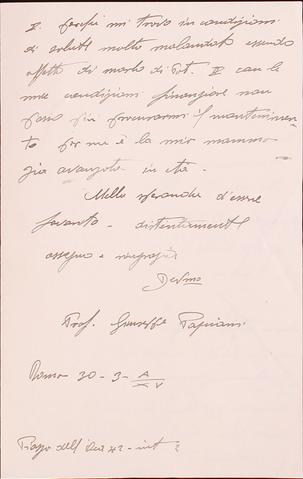 I. perché mi trovo in condizioni
di salute molto malandate essendo
affetto di morbo di Pot. II can le
mie condizioni finanziare non
posso più procurarmi il mantenimen-
to per me è la mia mamma
già avanzata in età.
Nella speranza d'essere
distintamente
ossequio e
Dev.mo
Prof. Giuseppe
Roma 30-3- A XV